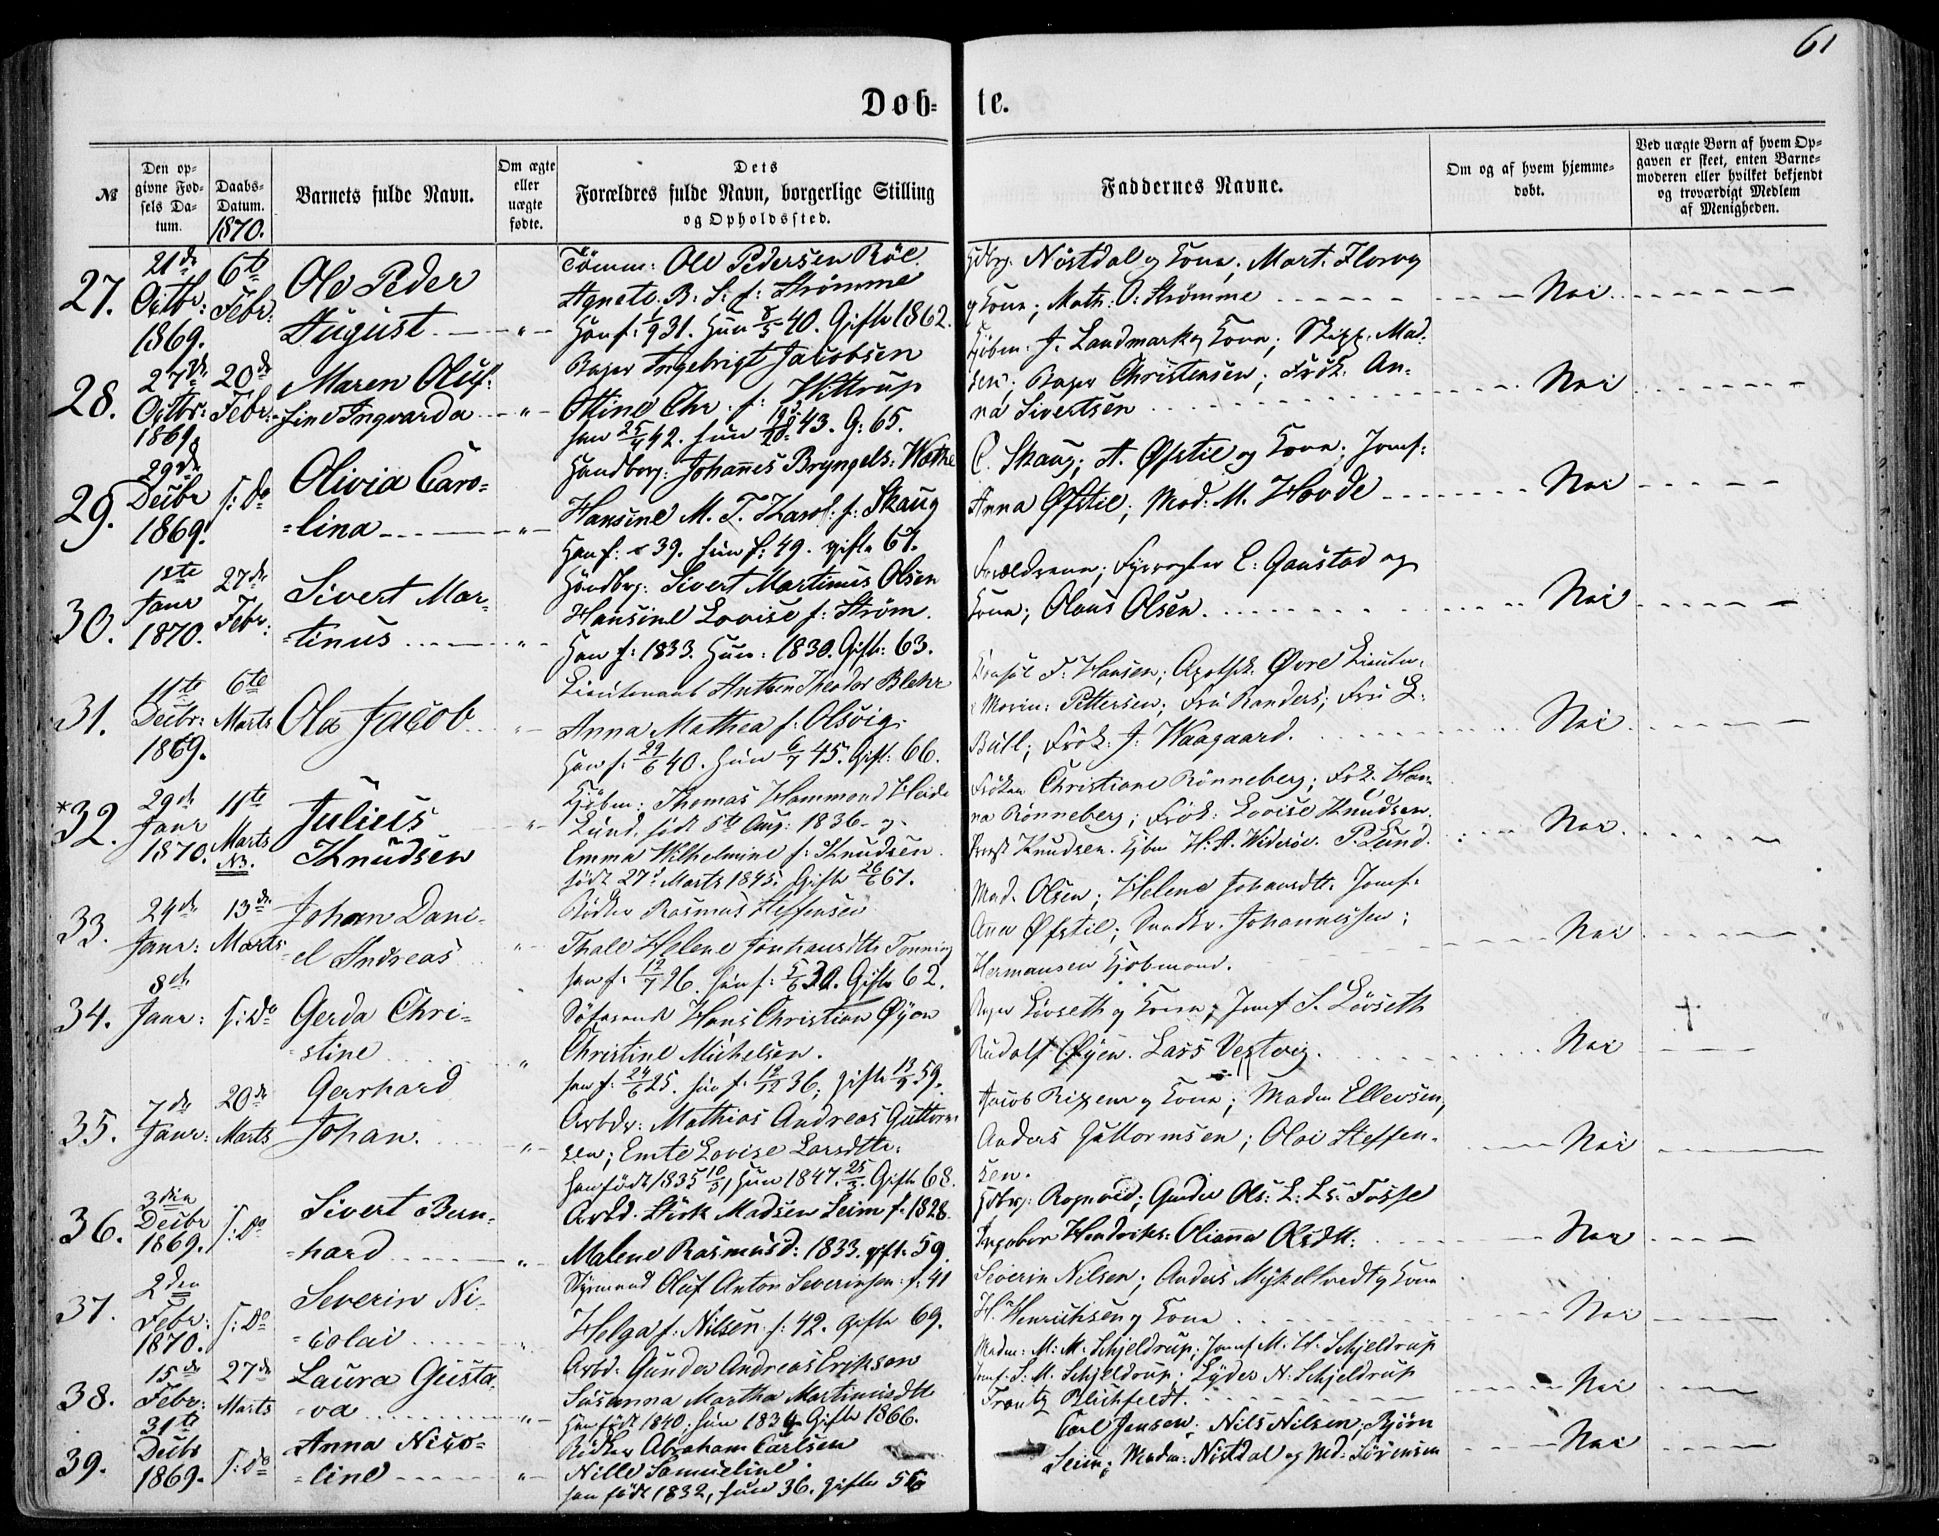 61
Döb=te.
№
Den op=
givne Fød=
sels Da=
tum.
Daabs=
Datum.
1870.
Barnets fulde Navn.
Om ægte
eller
uægte
fødte.
Dets
Forældres fulde Navn, borgerlige Stilling
og Opholdssted.
Faddernes Navne.
Om og af hvem hjemme=
døbt.
Ved uægte Børn af hvem Op=
gaven er skeet, enten Barne=
moderen eller hvilket bekjendt
og troværdigt Medlem
af Menigheden.
27.
21de
Octbr:
1869.
6te
Febr:
Ole Peder
August
Tömm: Ole Pedersen Röe
Agnete B: S: f: Strømme
Han f: 1/9 31. Hun 8/5 40. Gifte 1862.
Hdbrg. Nöstdal og Kone; Mart. Florvg
og Kone; Math: O: Strømme
Nei
28.
27de
Octbr:
1869.
20de
Febr:
Maren Oluf=
sine Ingvarda
Bager Ingebrigt Jacobsen
Ottine Chr. f: Wittrup
han 25/4 42. hun 43. G: 65.
Kjöbm. J. Landmark og Kone; Skipp. Mad=
sen; Bager Christensen; Frök. An=
na Sivertsen
Nei
29.
29de
Decbr
1869.
s: Do
Olivia Caro=
=lina
Handborg: Johannes Bryngels: Wathe
Hansine M. T. Karol: f: Skaug
Han f: 39. hun f: 49. gifte 67.
C. Skaug; A. Øfstie og Kone; Jomf:
Anna Øfstie; Mad: M. Hovde
Nei
30.
1ste
Janr
1870.
27de
Febr:
Sivert Mar=
=tinus
Handbrg: Sivert Martinus Olsen
Hansine Lovise f: Strøm.
Han f: 1833. Hun: 1830. Gifte: 63.
Forældrene; Fyrvogter E: Gaustad og
Kone; Olaus Olsen.
Nei
31.
11te
Decbr:
1869.
6te
Marts
Ole Jacob
Lieutenant Anthon Theodor Blehr
Anna Mathea f: Olsvig.
Han f: 29/6 40. Hun 6/7 45. Gift: 66.
F. Hansen; Apothk. Øvre Lieutn.
Marin: Pettersen; Fru Randers; Fru L.
Bull; Frök: J: Waagaard.
Nei
*32.
29de
Janr
1870.
11te
Marts
NB.
Julius
Knudsen
Kjöbm: Thomas Hammond Heide
Lund. födt 5te Aug: 1836 og
Emma Wilhelmine f: Knudsen
födt 27de Marts 1845. Gifte 26/6 67.
Fröken Christiane Rönneberg; Frk. Han=
na Rönneberg; Frök: Lovise Knudsen.
Knudsen. Kjbm H. A. Widerøe. P. Lund.
Nei
33.
24de
Janr:
13de
Marts
Johan Dani=
=el Andreas
Bödker Rasmus Steffensen
Thale Helene Johansdtr. Tonning
han f: 12/7 26. hun f: 5/6 30. Gifte 62.
Mad. Olsen; Helene Johansdtr. Jomf.
Ane Øfstie; Johannessen;
Hermansen Kjöbmand.
Nei
34.
8de
Janr:
s: Do
Gerda Chri=
=stine
Søfarende Hans Christian Øyen
Christine Michelsen.
han f: 24/6 25. hun f: 12/12 36; gifte 13/9 59.
Løvseth og Kone; Jomf S. Lövseth
Rudolf Øyen. Lars Vestvig.
Nei
+
35.
7de
Janr:
20de
Marts
Gerhard
Johan.
Arbdr: Mathias Andreas Guttorm=
sen; Emte Lovise Larsdtr.
Han født 1835 10/3, Hun 1847. 25/3. Gifte 68.
Jacob Rixen og Kone; Madm Ellevsen,
Anders Guttormsen; Oloi Steffen=
sen.
Nei
36.
3den
Decbr
1869.
s: Do
Sivert Bern=
=hard
Arbd. Stirk Madsen Leim f. 1828.
Malene Rasmusd: 1833. gift: 59.
Hdbrg: Rognvid; Gunder Ols: L: Ls: Fosse
Ingebor Hendriks: Olianna Olsdtr:
Nei
37.
2den
Febr:
1870.
s: Do
Severin Ni=
=colai
Styrmand Oluf Anton Severinsen f: 41
Helga f: Nilsen f: 42. gifte 69.
Severin Nilsen; Anders Myklevedt og Kone
H. Henrichsen og Kone
Nei
38.
15de
Febr:
27de
Marts
Laura Gusta=
=va
Arbd: Gunder Andreas Eriksen
Susanna Martha Martinusdtr
Han født 1840. Hun 1834 Gifte 1866.
Madm: M: M. Schjeldrup; Jomf M. H. Schjeldrup
Jomf. S. M. Schjeldrup; Lyder N. Schjeldrup
Frantz Blichfeldt.
Nei
39.
31te
Decbr
1869.
s: Do
Anna Nico=
=line
Bödker Abraham Carlsen
Nille Samueline.
han født 1832, hun 36. gifte 56
Carl Jensen; Nils Nilsen; Björn
Leim; Madm: Nistdal og Mad. Sörensen
Nei